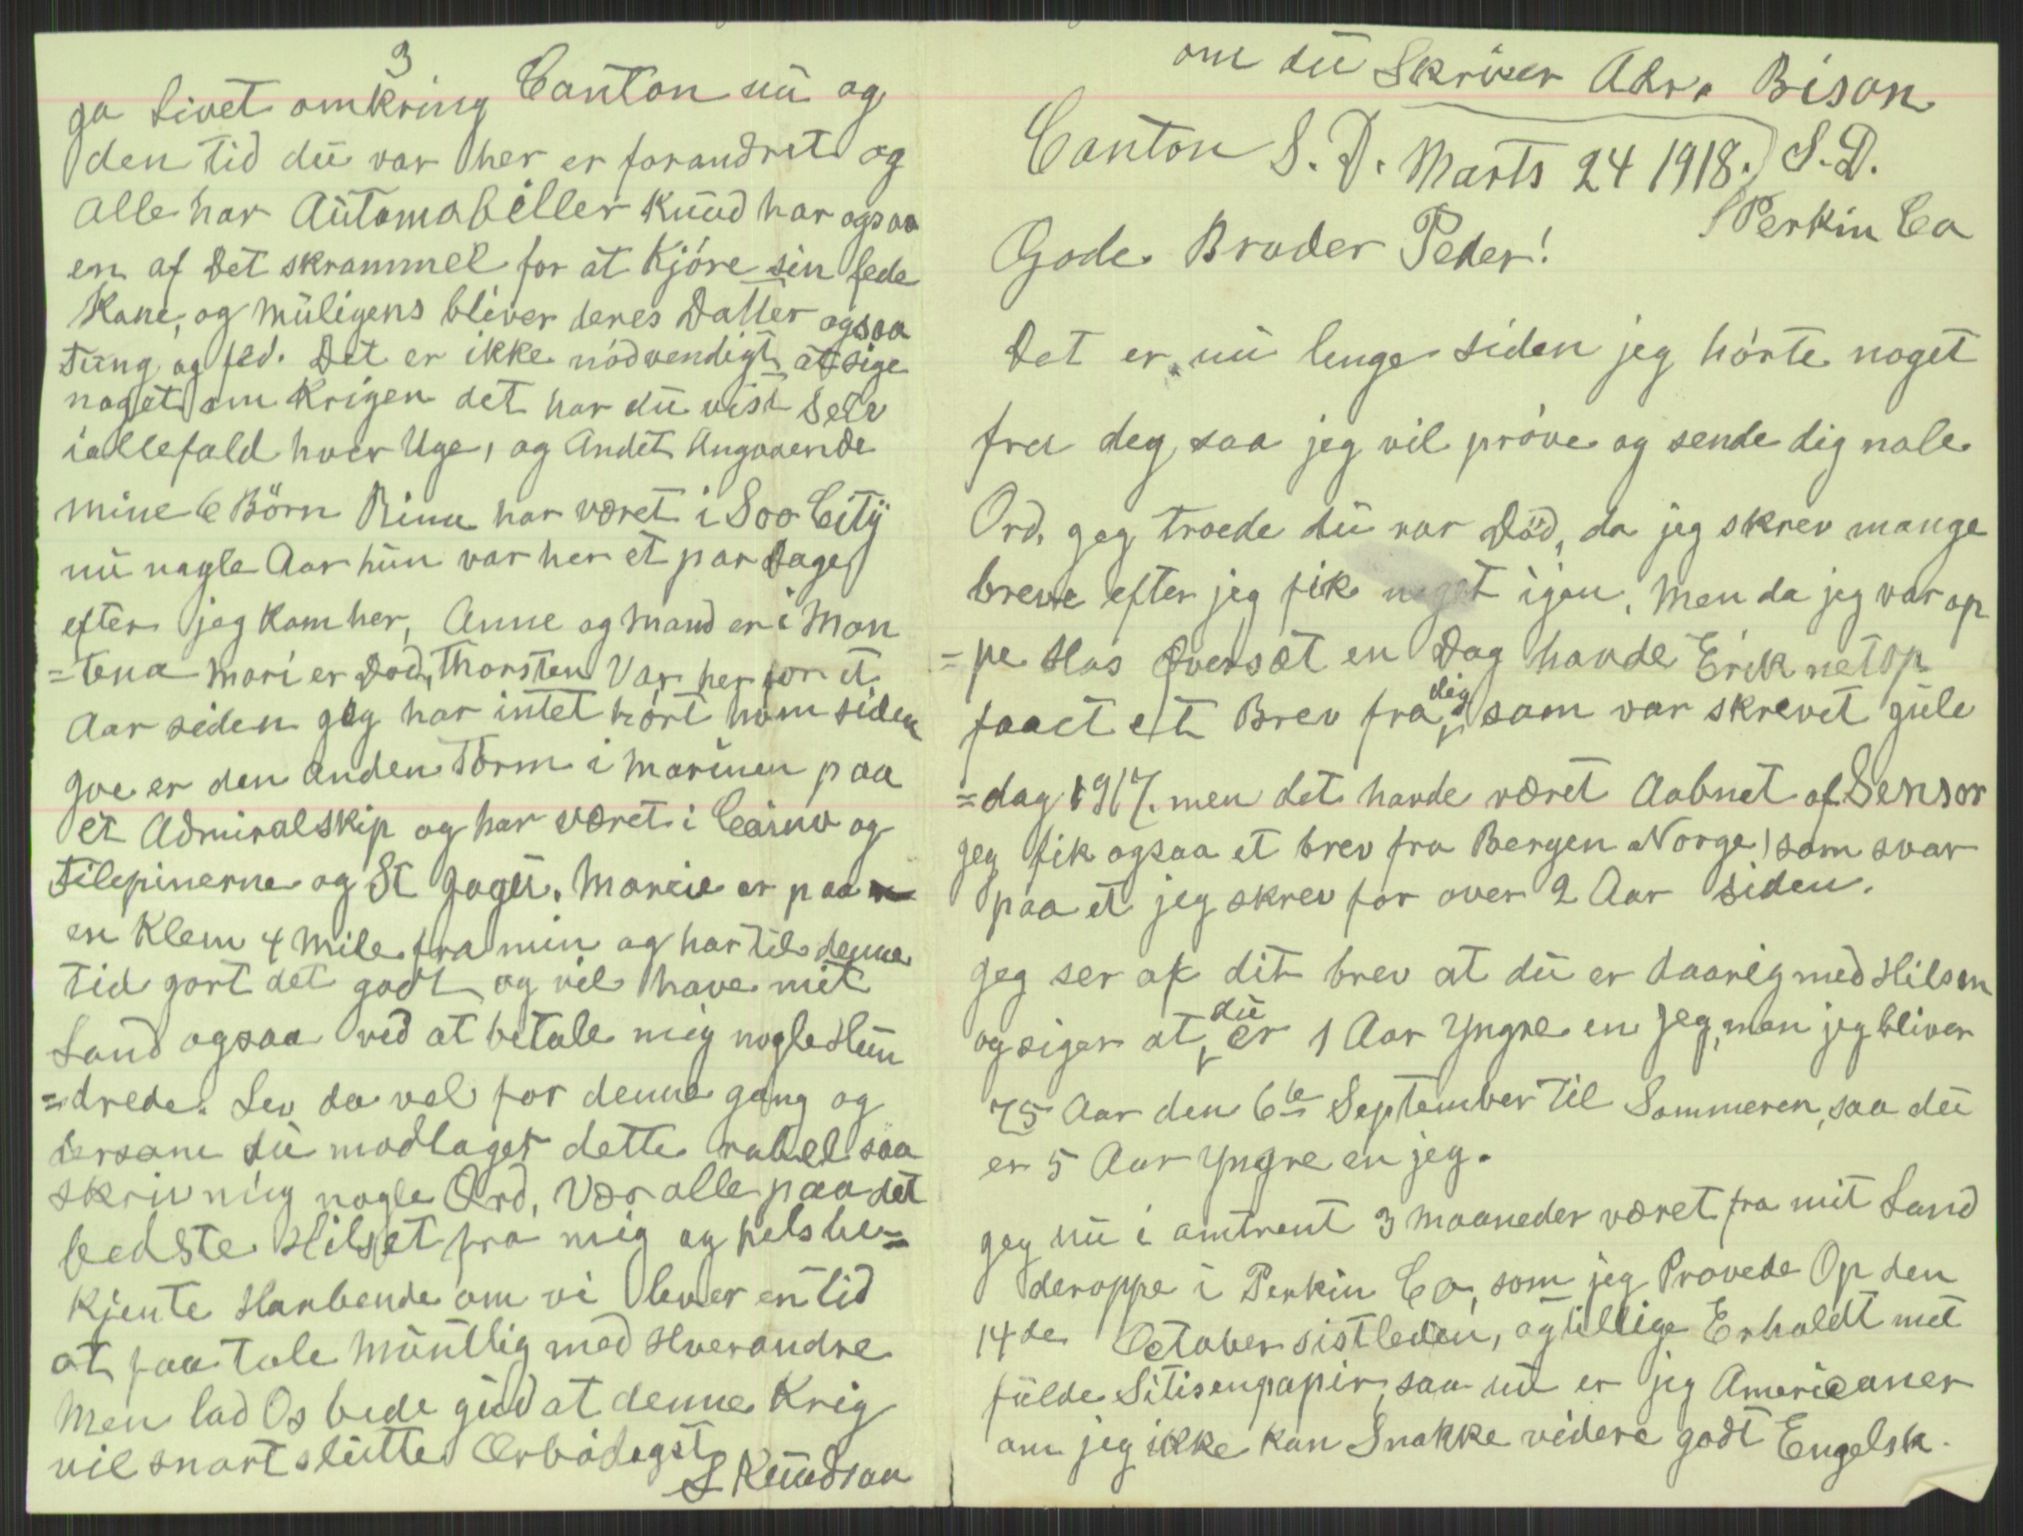 om du Skriver Adr. Bison
S. D.
Perkin Co
Canton S. D. Marts 24 1918.
Gode Broder Peder!
Det er nu lenge siden jeg hórte noget
fra deg, saa jeg vil próve og sende dig nole
Ord. Jeg troede du var Död, da jeg skrev mange
breve efter jeg fik noget igen. Men da jeg var op
=pe Hos Øversæt en Dag havde Erik netop
faaet et Brev fra dig som var skrevet jule
=dag 1917. men det havde været Aabnet af Sensor
jeg fik ogsaa et brev fra Bergen Norge som svar
paa et jeg skrev for over 2 Aar siden.
Jeg ser af dit brev at du er daarlig med Hilsen
og siger at du er 1 Aar Yngre en Jeg, men jeg bliver
75 Aar den 6te September til Sommeren, saa du
er 5 Aar Yngre en jeg.
Jeg nu i omtrent 3 Maaneder været fra mit Land
deroppe i Perkin Co, som jeg Provede Op den
14de October sistleden, og tillige Erholdt mit
fulde Sitisenpapir, saa nu er jeg Americaner
om jeg ikke kan Snakke videre godt Engelsk.
3
Ja Livet omkring Canton nu og
den tid du var her er forandret og
Alle har Automobiller Knud har ogsaa
en af Det skrammel for at Kjóre sin fede
Kone, og Muligens bliver deres Datter ogsaa
tung og fed. Det er ikke nödvendigt at sige
noget om Krigen det har du vist Selv
iallefald hver Uge, og Andet Angaaende
mine 6 Börn Rina har været i Soo City
nu nogle Aar hun var her et par Dage
efter jeg kom her, Anne og Mand er i Mon
=tena Mari er Död, Thorsten Var her for et
Aar siden jeg har intet hórt hom siden
Joe er den anden Torm i Marinen paa
et Admiralskip og har været i Cainv og
Filepinerne og St Jagu. Marie er paa
en Klem 4 Mile fra min og har til denne
tid gort det godt og vil have mit
Land ogsaa ved at betale mig nogle Hun
=drede. Lev da vel for denne gang og
dersom du modtager dette rabel saa
skriv mig nogle Ord. Vær alle paa det
bedste Hilset fra mig og fels be=
kjente Harbende om vi lever en tid
at faa tale Müntlig med Hverandre
Men lad Os bede gud at denne Krig
vil snart slutte Ærbödigst
L Knudson